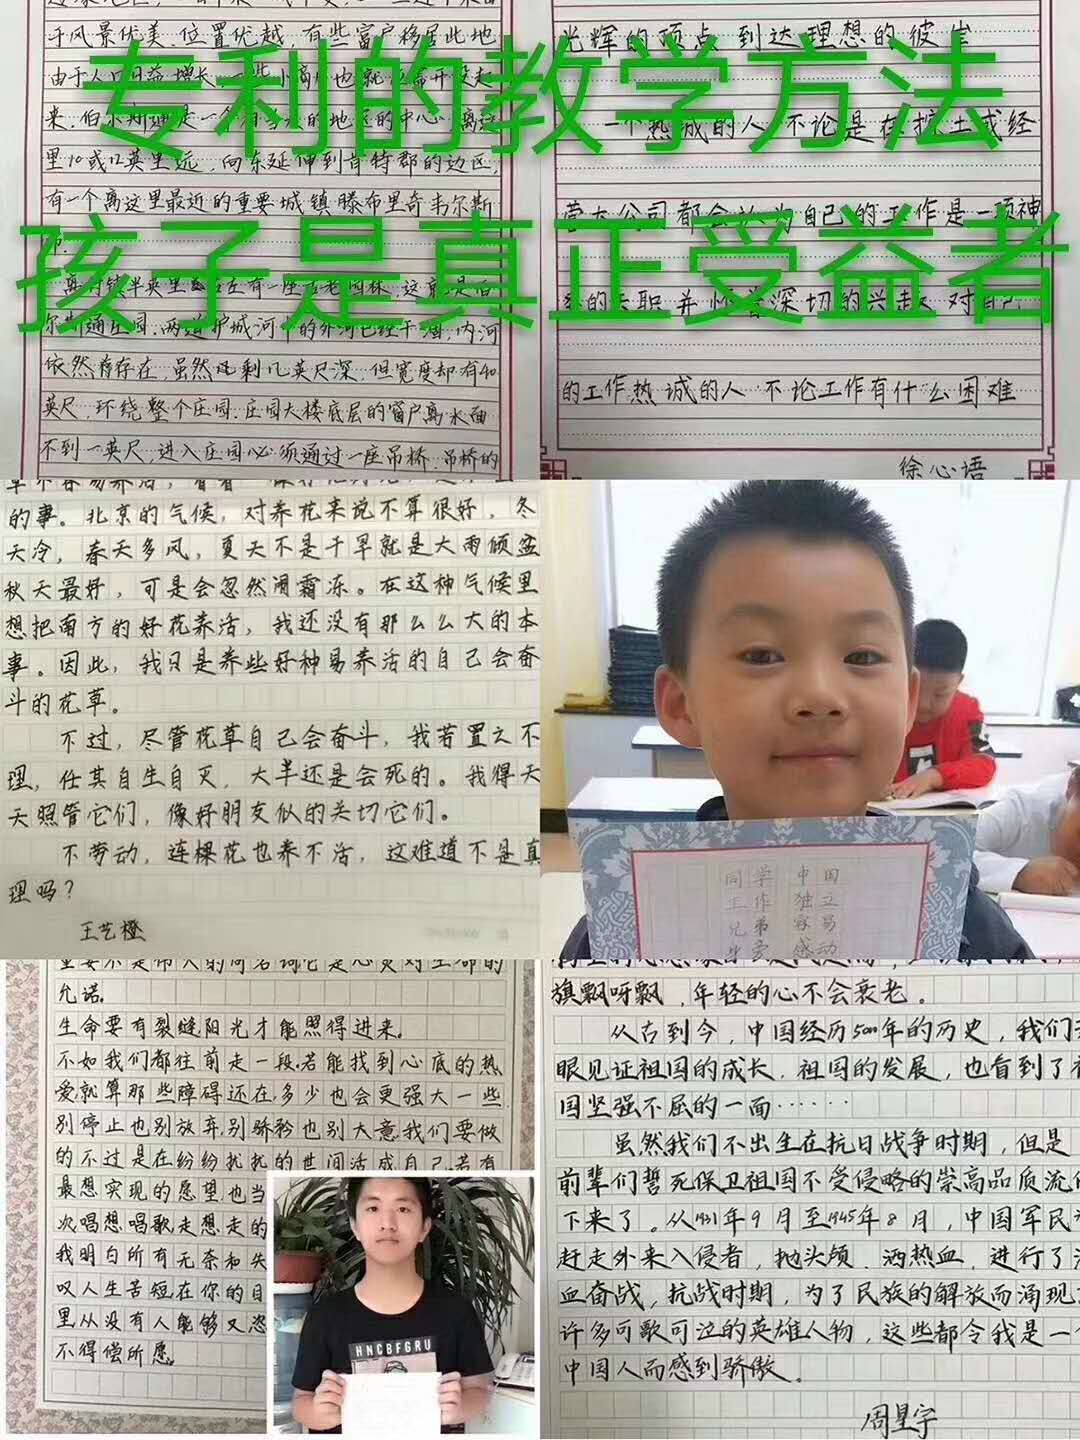 专利的教学方法
孩子是真正受益者
于风景优美、位置优越，有些富户移居此地
由于人口日益增长，一些小商
里10或12英里远，向东延伸到肯特郡的边区，
有一个离这里最近的重要城镇滕布里奇韦尔斯
依然存在，虽然只剩几英尺深，但宽度却有40
英尺，环绕整个庄园。庄园大楼底层的窗户离水面
不到一英尺，进入庄园必须通过一座吊桥，吊桥的
光辉的顶点 到达理想的彼岸
一个热诚的人 不论是在挖土或经
营大公司都会认为自己的工作是一项神
的工作热诚的人 不论工作有什么困难
徐心语
的事。北京的气候，对养花来说不算很好，冬
天冷，春天多风，夏天不是干旱就是大雨倾盆
秋天最好，可是会忽然闹霜冻。在这种气候里
想把南方的好花养活，我还没有那么么大的本
事。因此，我只是养些好种易养活的自己会奋
斗的花草。
不过，尽管花草自己会奋斗，我若置之不
理，任其自生自灭，大半还是会死的。我得天
天照管它们，像好朋友似的关切它们。
不劳动，连棵花也养不活，这难道不是真
理吗？
王艺橙
同学 中国
工作 独立
兄弟 容易
感动
允诺。
生命要有裂缝阳光才能照得进来。
不如我们都往前走一段.若能找到心底的热
爱.就算那些障碍还在.多少也会更强大一些.
别停止也别放弃.别骄矜也别大意.我们要做
的不过是在纷纷扰扰的世间活成自己.若有
最想实现的愿望.也当
次唱想唱歌走想走的
我明白所有无奈和失
叹人生苦短在你的目
里从没有人能够又恣
不得偿所愿。
HNCBFGRU
旗飘呀飘，年轻的心不会衰老。
从古到今，中国经历5000年的历史，我们
眼见证祖国的成长，祖国的发展，也看到了
国坚强不屈的一面……
虽然我们不出生在抗日战争时期，但是
前辈们誓死保卫祖国不受侵略的崇高品质流
下来了。从1931年9月至1945年8月，中国军民
赶走外来入侵者，抛头颅、洒热血，进行了
血奋战，抗战时期，为了民族的解放而涌现
许多可歌可泣的英雄人物，这些都令我是一
中国人而感到骄傲。
周星宇